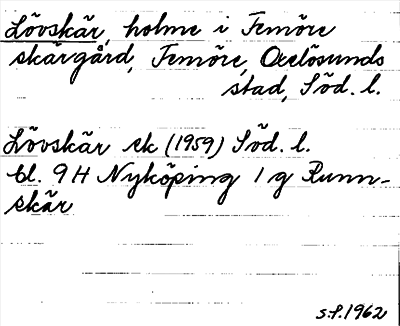 Lövskär, holme i Femöre
skärgård, Femöre, Oxelösunds
stad, Söd. l.
Lövskär ek (1959) Söd. l.
bl. 9H Nyköping 1 g Runn-
skär
s.f. 1962